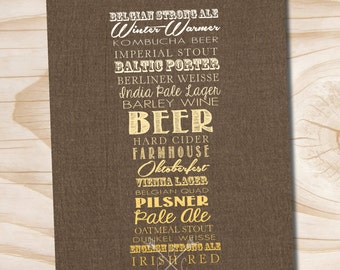 BELGIAN STRONG ALE
Winter Warmer
KOMBUCHA BEER
IMPERIAL STOUT
BALTIC PORTER
BERLINER WEISSE
India Pale Lager
BARLEY WINE
BEER
HARD CIDER
FARMHOUSE
Oktoberfest
VIENNA LAGER
BELGIAN QUAD
PILSNER
Pale Ale
OATMEAL STOUT
DUNKEL WEISSE
ENGLISH STRONG ALE
IRISH RED